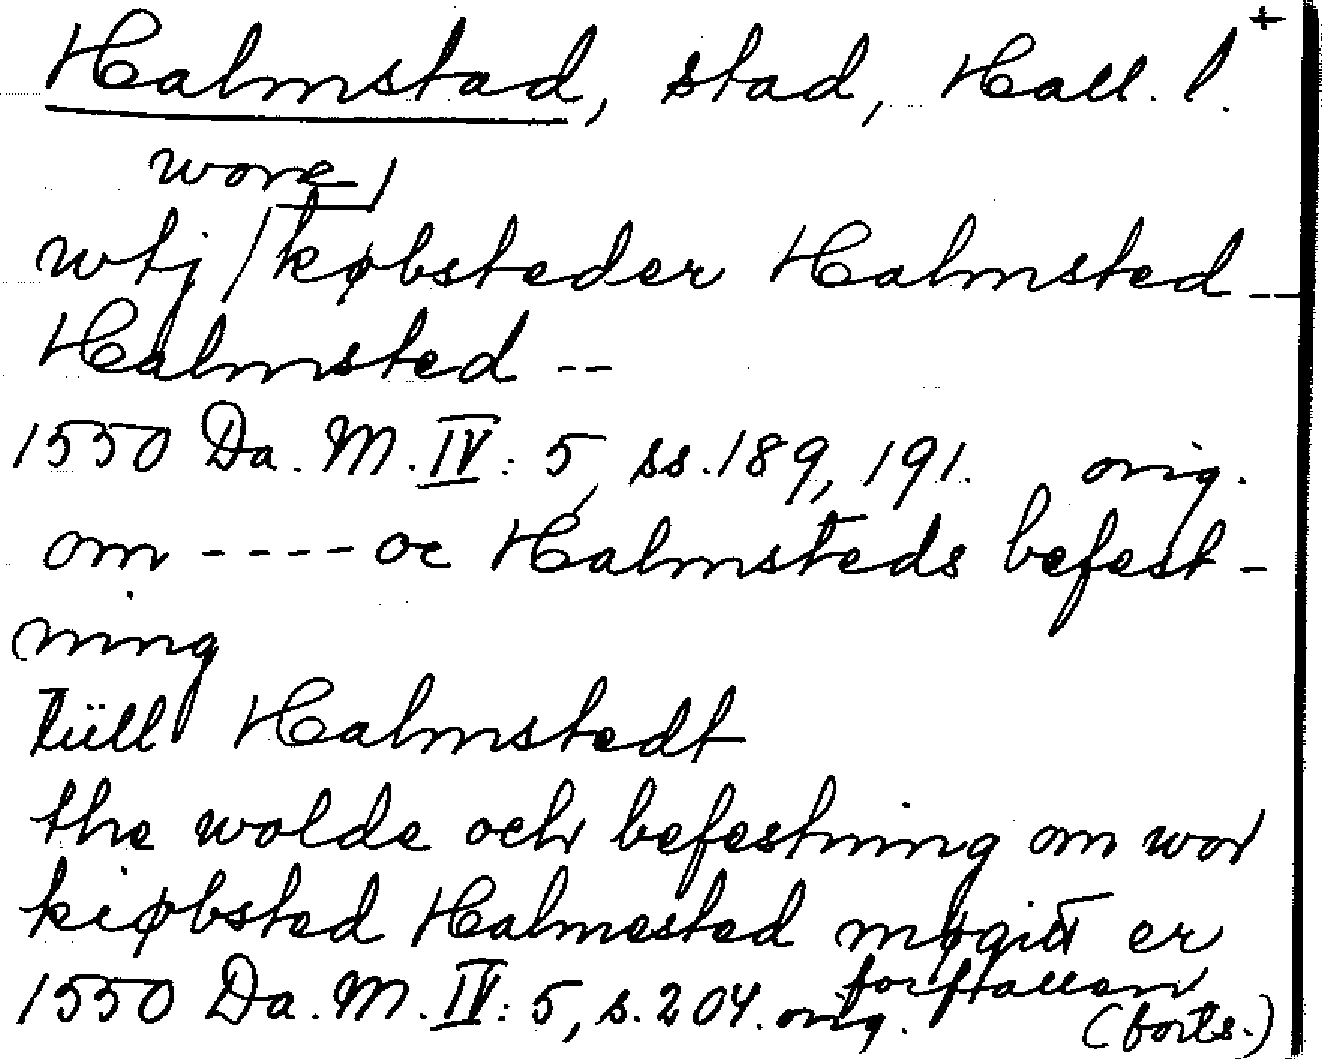 Halmstad, stad, Hall. l. +
wore
wtj / købsteder Halmsted --
Halmsted --
1550 Da. M. IV: 5, ss. 189, 191. orig.
om ---- oc Halmsteds befest-
ning
tiill Halmstedt
the wolde och befestning om wor
kiøbsted Halmested møgitt er
forfallan
1550 Da. M. IV: 5, s. 204. orig. (forts.)